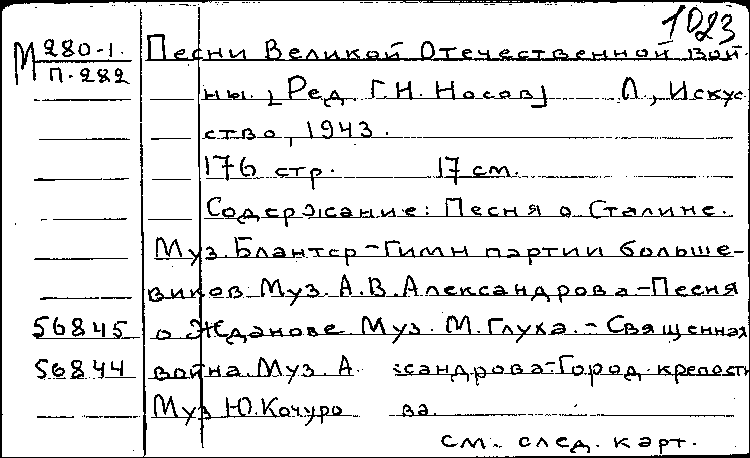 1023
М 280-1. Песни Великой Отечественной вой-
П-282
ны. [Ред. Г.Н. Носов] Л, Искус
ство, 1943.
176 стр. 17 см.
Содержание: Песня о Сталине.
Муз. Блантер - Гимн партии больше-
виков Муз. А.В. Александрова - Песня
56845 о Жданове Муз. М. Глуха. - Священная
56844 война. Муз. А. сандрова - Город крепость
Муз Ю. Кочуро ва.
см. след. карт.